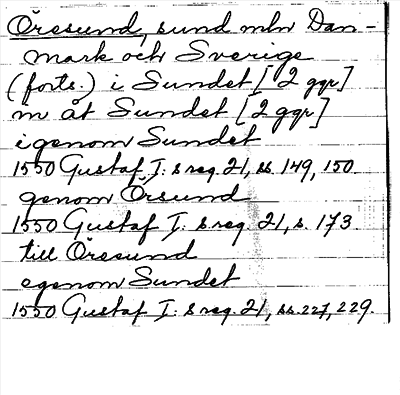 Öresund, sund mln Dan-
mark och Sverige
(forts.) i Sundet [2 ggr]
m åt Sundet [2 ggr]
igenom Sundet
1550 Gustaf I:s reg. 21, ss. 149, 150.
genom Örsund
1550 Gustaf I:s reg. 21, s. 173.
till Öresund
egenom Sundet
1550 Gustaf I:s reg. 21, ss. 227, 229.